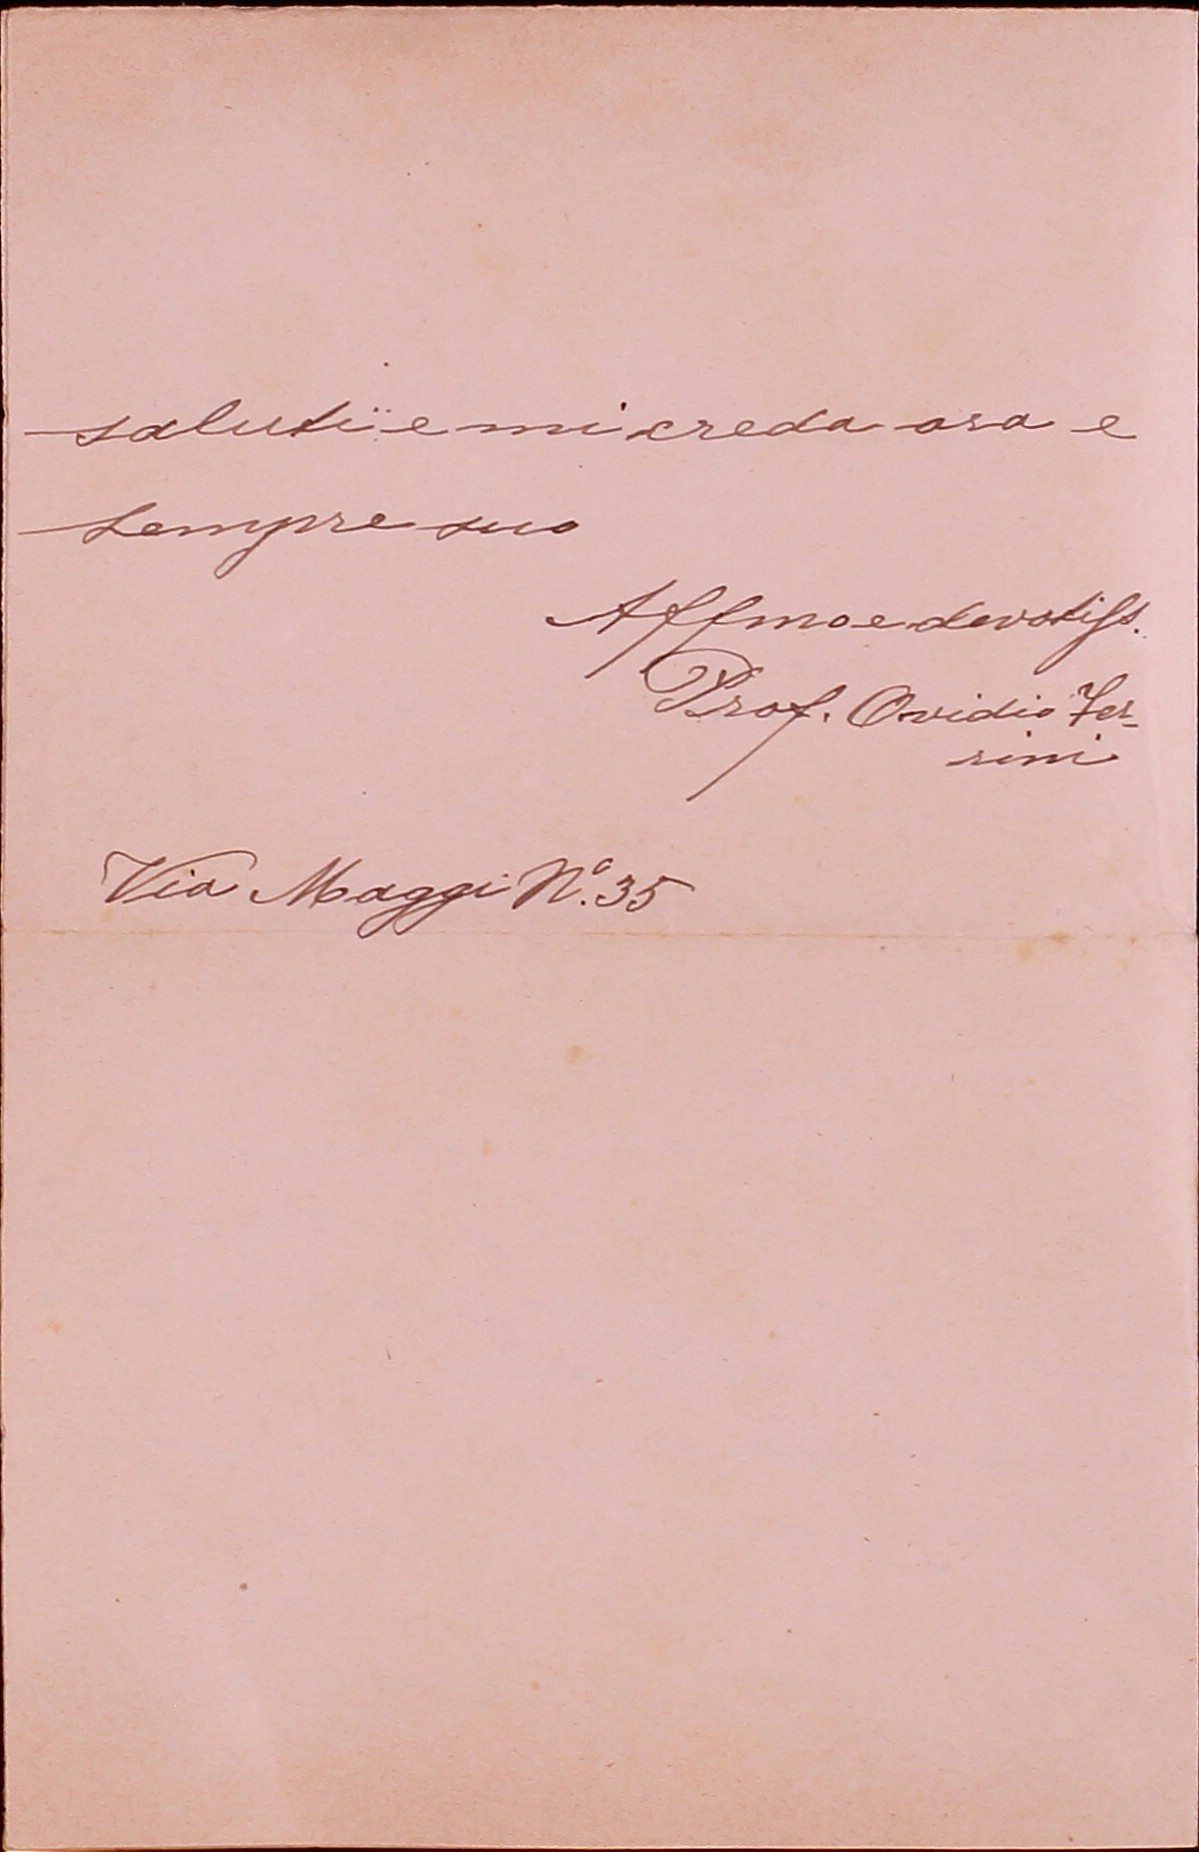 saluti e mi creda ora e
sempre suo
Affmo e devotiss.
Prof. Ovidio Fer-
rini
Via Maggi No. 35